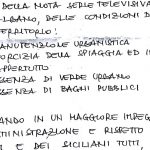 DELLA NOTA SERIE TELEVISIVA
ALBANO, DELLE CONDIZIONI D
TERRITORIO!
MANUTENZIONE URBANISTICA
SPORCIZIA DELLA SPIAGGIA ED I
APPERTUTTO
SSENZA DI VERDE URBANO
SSENZA DI BAGNI PUBBLICI
RANDO IN UN MAGGIORE IMPEG
MINISTRAZIONE E RISPETTO
I E DEI SICILIANI TUTTI,